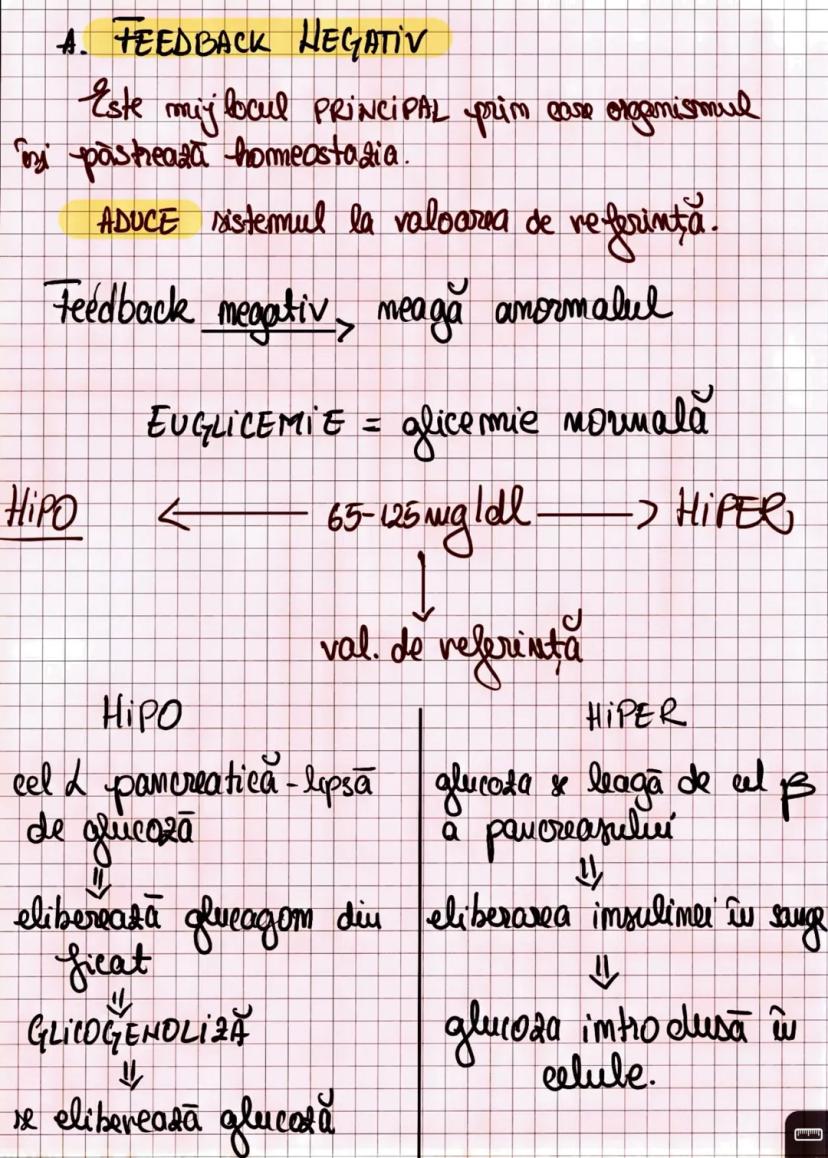 A. FEEDBACK NEGATIV
Este mijlocul PRINCIPAL prin care organismul
își păstrează homeostazia.
ADUCE sistemul la valoarea de referință.
Feedback negativ neagă anormalul
EUGLICEMIE = glicemie normală
HIPO ← 65-125 mg/dl → HIPER
↓
val. de referință
HIPO
cel α pancreatică - lipsă
de glucoză
⇓
eliberează glucagon din
ficat
⇓
GLICOGENOLIZĂ
⇓
se eliberează glucoză
HIPER
glucoza se leagă de cel β
a pancreasului
⇓
eliberarea insulinei în sânge
⇓
glucoza introdusă în
celule.